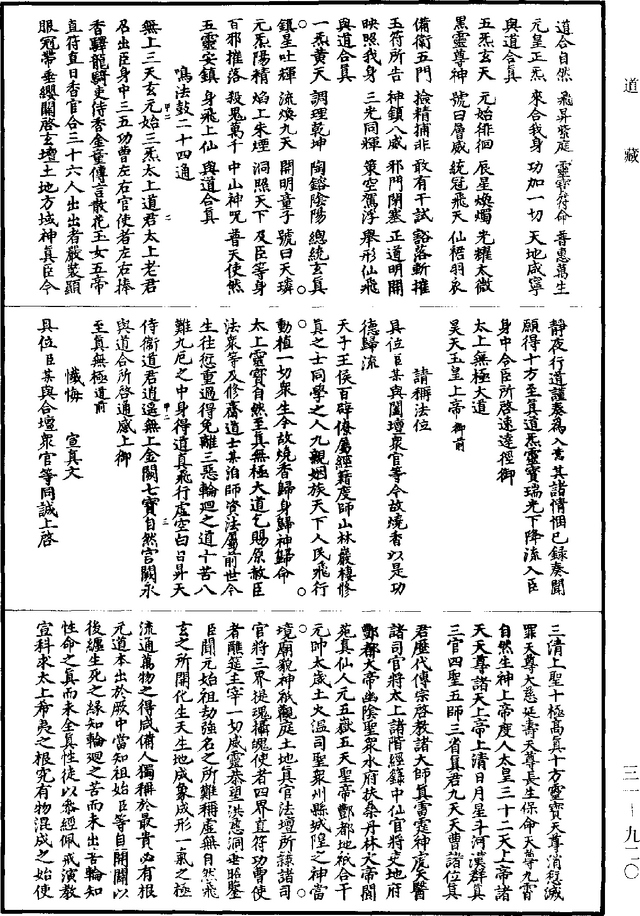 道藏
道合自然 飛昇紫庭 靈寶符命 普惠萬生
元皇正炁 來合我身 功加一切 天地咸寧
與道合真
五炁玄天 元始徘徊 辰星煥燭 光耀太微
黑靈尊神 號曰層威 統冠飛天 仙裙羽衣
備衛五門 撿精捕非 敢有干試 豁落斬摧
玉符所告 神鎮八威 邪門閉塞 正道明開
映照我身 三光同輝 策空駕浮 舉形仙飛
與道合真
一炁黃天 調理乾坤 陶鎔陰陽 總統玄真
鎮星吐輝 流煥九天 開明童子 號曰天璘
元炁陽精 焰上朱煙 洞照天下 及臣等身
百邪摧落 殺鬼萬千 中山神咒 普天使然
五靈安鎮 身飛上仙 與道合真
鳴法鼓二十四通
無上三天玄元始三炁太上道君太上老君
召出臣身中三五功曹左右官使者左右捧
香驛龍騎吏侍香金童傳言散花玉女五帝
直符直日香官合三十六人出出者嚴裝顯
服冠帶垂纓關啓玄壇土地方域神真臣今
靜夜行道謹奏為入意其諸情悃已錄奏聞
願得十方至真道炁靈寶瑞光下降流入臣
身中令臣所啓速達徑御
太上無極大道
昊天玉皇上帝御前
請稱法位
具位臣某與闔壇眾官等今故燒香以是功
德歸流
天子王侯百辟僚屬經籍度師山林巖棲修
真之士同學之人九親姻族天下人民飛行
動植一切眾生今故燒香歸身歸神歸命
太上靈寶自然至真無極大道乞賜原赦臣
法眾等及修齋道士某洎師資法屬前世今
生往愆重過得免離三惡輪廻之道十苦八
難九厄之中身得道真飛行虛空白日昇天
侍衛道君逍遙無上金闕七寶自然宮闕永
與道合所啓通感上御
至真無極道前
懺悔 宣真文
具位臣某與合壇眾官等同誠上啓
三清上聖十極高真十方靈寶天尊消穰滅
罪天尊大慈延壽天尊長生保命天尊九霄
自然生神上帝度人太皇三十二天上帝諸
天天尊諸天上帝上清日月星斗河漢群真
三官四聖五師三省真君九天天曹諸位真
君歷代傳宗啓教諸大師真雷霆神虎天醫
諸司官將太上諸階經籙中仙官將吏地府
酆都大帝幽陰聖眾水府扶桑丹林大帝閬
苑真仙人元五嶽五天聖帝酆都地衹合干
元帥太歲土火溫司聖眾州縣城隍之神當
境廟貌神衹觀庭土地真官法壇所隸諸司
官將三界捉魂攝魄使者四界直符功曹使
者醮筵主宰一切威靈恭望洪慈洞垂昭鑒
臣聞元始祖劫強名之所難稱虛無自然飛
玄之所開化生天生地成象成形一氣之極
流通萬物之得咸備人獨稱於最貴必有根
元道本出於厥中當知祖始臣等自開闢以
後纏生死之緣知輪廻之苦而未出苦輪知
性命之真而未全真性徒以參經佩戒演教
宣科求太上希夷之根究有物混成之始使
三一－九二〇